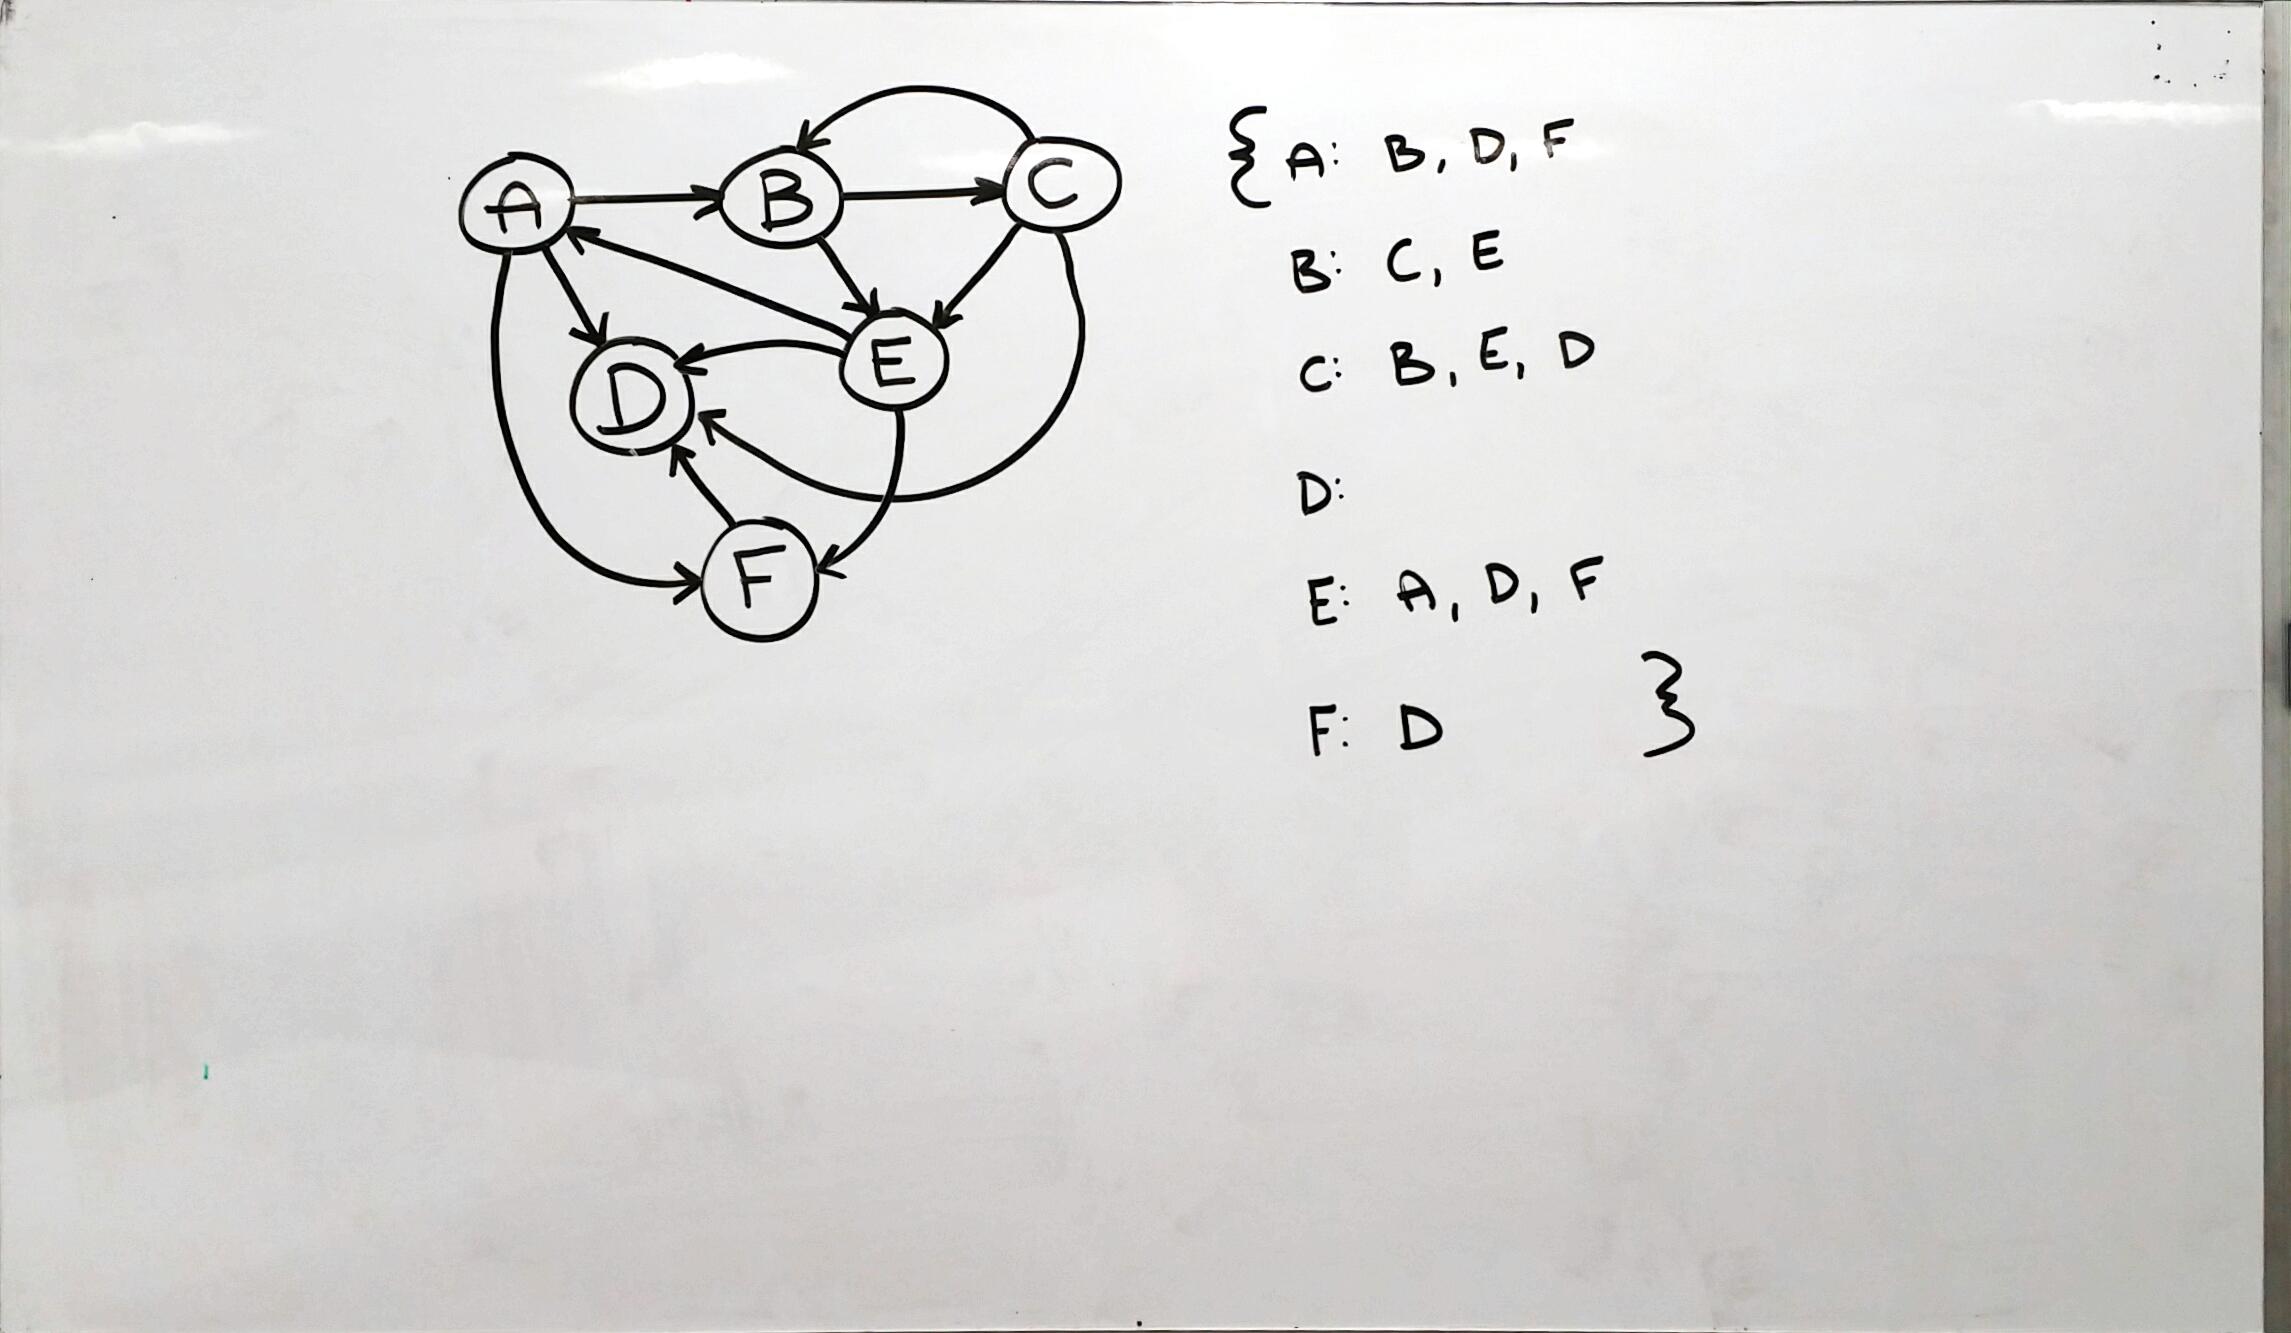 A
B
C
D
E
F
{ A: B, D, F
B: C, E
C: B, E, D
D:
E: A, D, F
F: D }